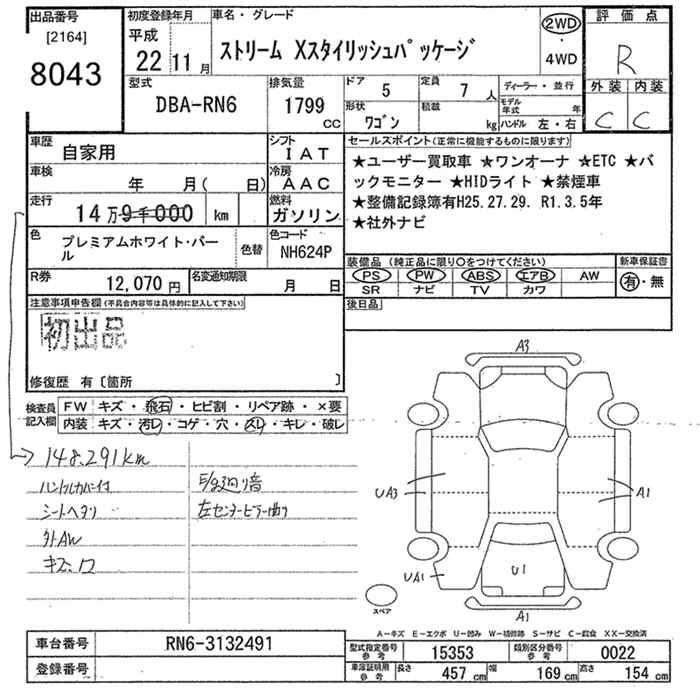 出品番号
[2164]
8043
初度登録年月
平成
22年11月
車名・グレード
ストリーム Xスタイリッシュパッケージ
2WD
・
4WD
評価点
R
外装 内装
C C
型式
DBA-RN6
排気量
1799
CC
ドア 5
定員 7 人
形状 ワゴン
積載 kg
ディーラー・並行
モデル年式 年
ハンドル 左・右
車歴
自家用
シフト
IAT
車検
年 月( 日)
冷房
AAC
走行
14万9千000 km
燃料
ガソリン
色
プレミアムホワイト・パール
色替
色コード
NH624P
R券
12,070円
名変通知期限
月 日
セールスポイント(正常に機能するものに限ります)
★ユーザー買取車 ★ワンオーナ ★ETC ★バ
ックモニター ★HIDライト ★禁煙車
★整備記録簿有H25.27.29. R1.3.5年
★社外ナビ
装備品 (純正品に限り○をつけてください)
新車保証書
PS PW ABS エアB AW
SR ナビ TV カワ
有・無
後日品
注意事項申告欄(不具合内容等は具体的に記入して下さい)
初出品
修復歴 有〔箇所 〕
検査員記入欄
FW キズ・飛石・ヒビ割・リペア跡・×要
内装 キズ・汚レ・コゲ・穴・スレ・キレ・破レ
148.291km
ハンドルカバー付
シートヘタリ
外AW
キズ.ワ
左センターピラー曲り
A3
UA3
A1
UA1
U1
A1
スペア
A−キズ E−エクボ U−凹み W−補修跡 S−サビ C−腐食 XX−交換済
車台番号
RN6-3132491
登録番号
型式指定番号
参考
15353
類別区分番号
参考
0022
車庫証明用
参考
長さ 457 cm
幅 169 cm
高さ 154 cm